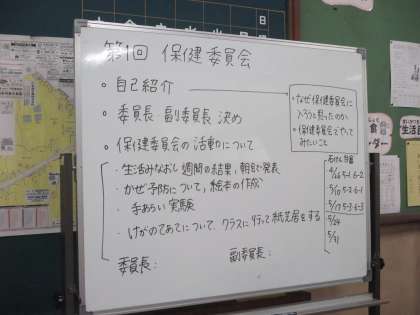 第1回 保健委員会
・自己紹介
・なぜ保健委員会に
入ろうと思ったのか
・保健委員会でやって
みたいこと
・委員長 副委員長 決め
・保健委員会の活動について
・生活みなおし週間の結果、朝自で発表
・かぜ予防について、絵本の作成
・手あらい実験
・けがのてあてについて、クラスに行って紙芝居をする
委員長:
副委員長:
石けん
4/26 5-1 6-2
5/10 5-2 6-1
5/17 5-3 6-3
5/24
5/31